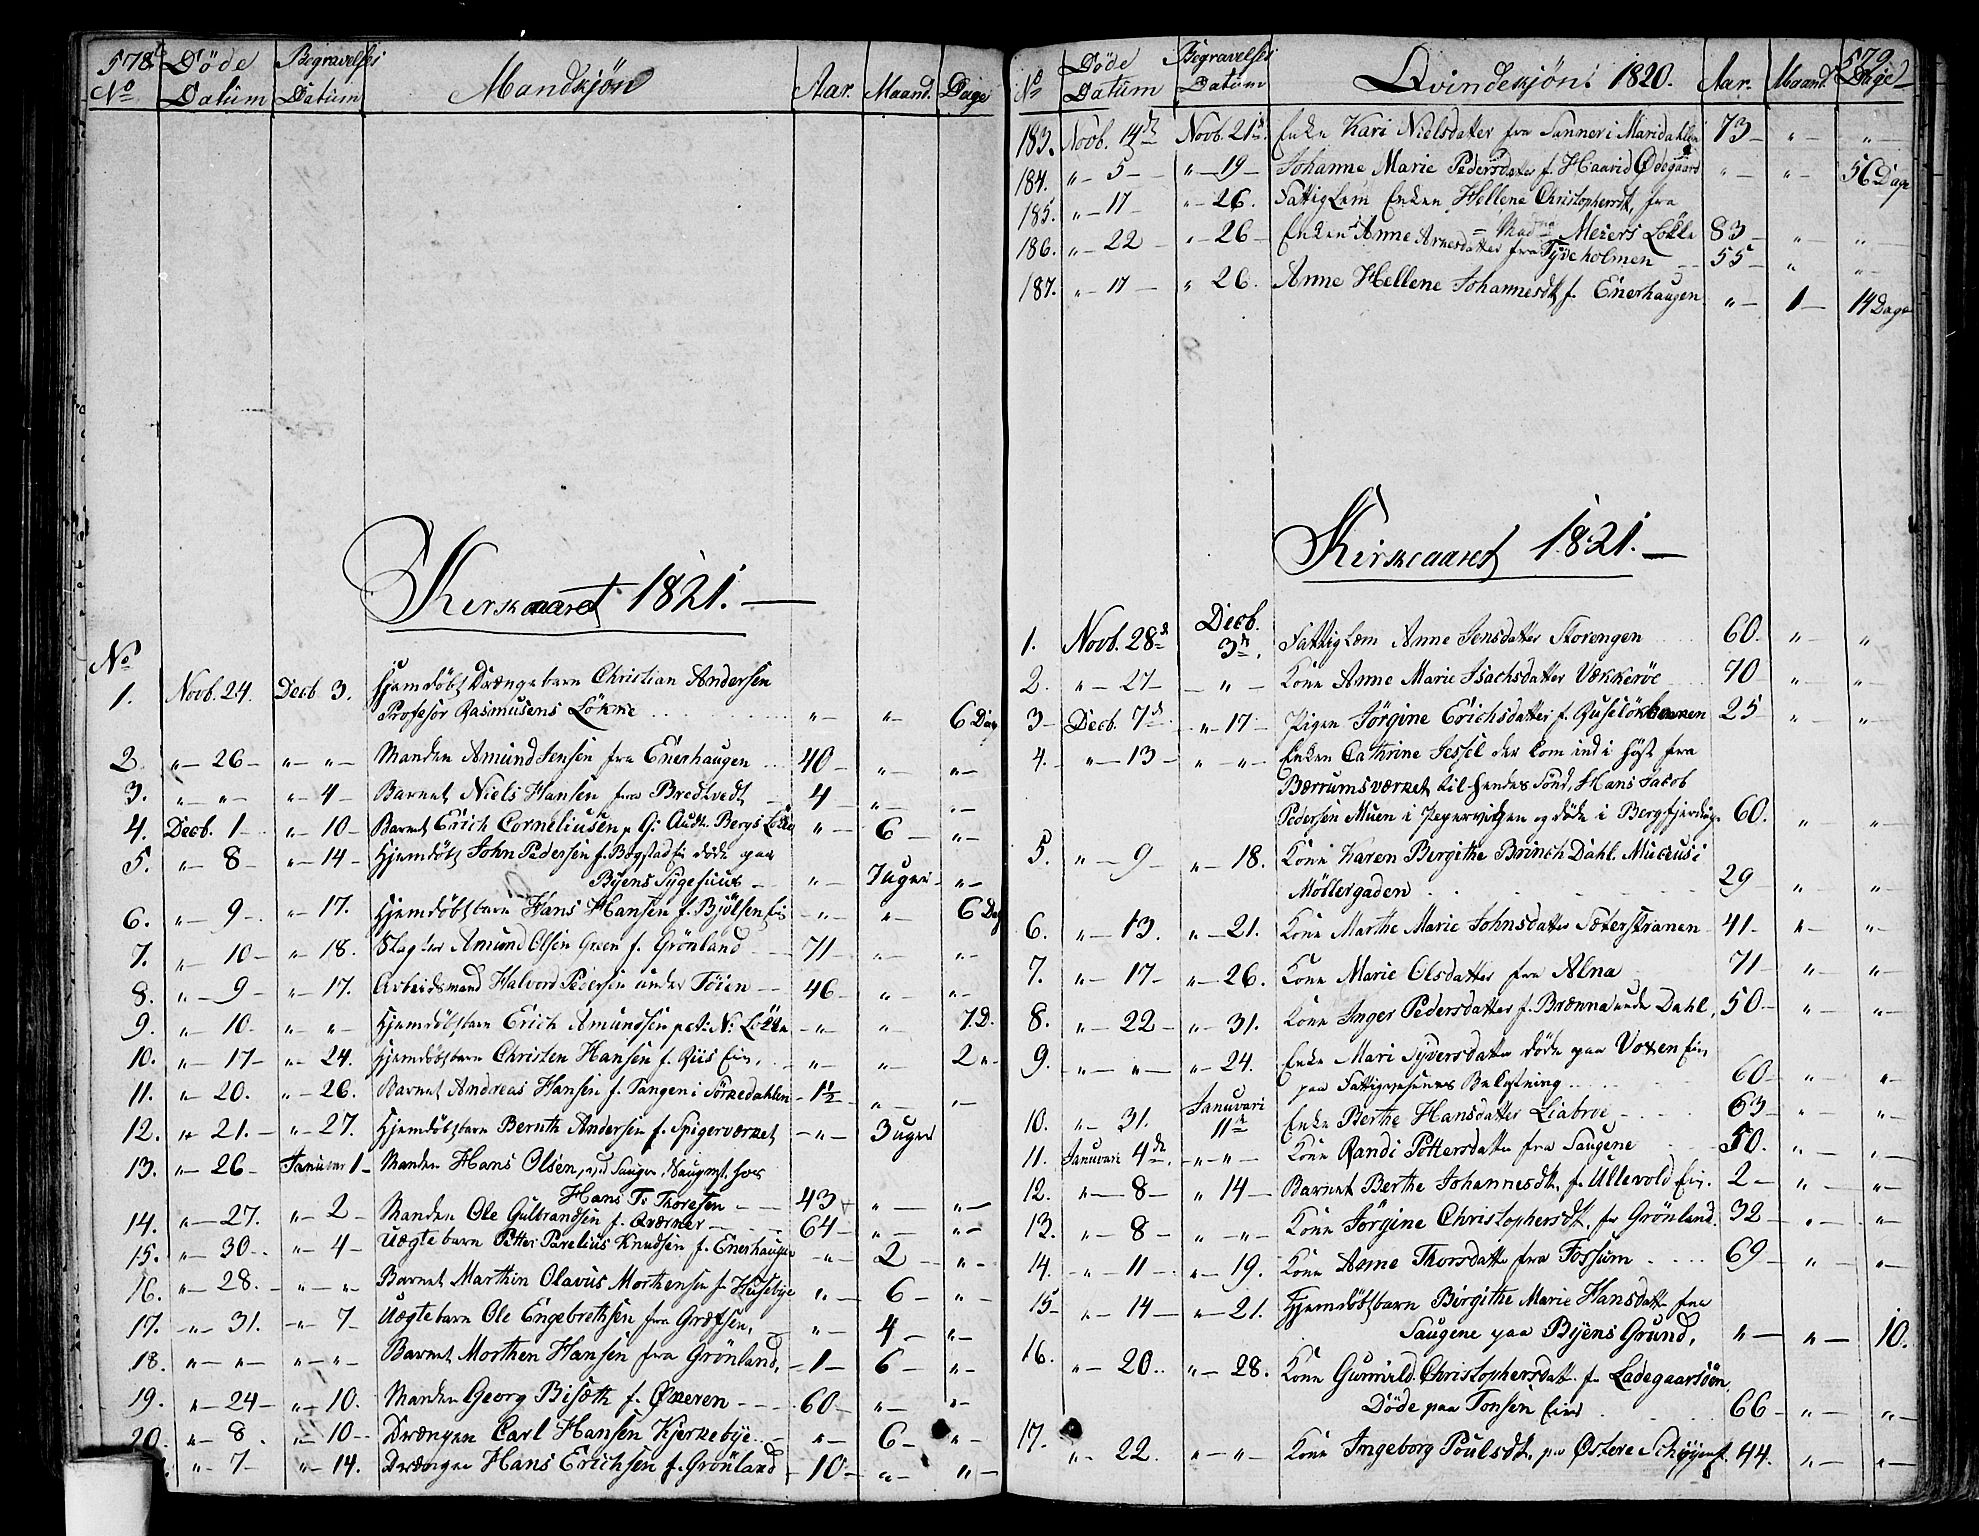 578
No
Døde Datum
Begravelses Datum
Mandkjøn
Aar.
Maand.
Dage
Kirkeaaret 1821.
No
1. Novb. 24. Decb 3. Hjemdøbt Drængebarn Christian Andersen
Profesor Rasmusens Løkke " " 6 Dag
2. " 26 " " Manden Amund Jensen fra Enerhaugen 40 " "
3. " " " 4 Barnet Niels Hansen fra Bredtvedt 4 " "
4. Decb. 1 " 10 Barnet Erich Corneliusen p G: Bergs Løkke " 6 "
5. " 8 " 14 Hjemdøbt John Pedersen f. Bogstad døde paa
Byens Sygehuus " 7 uger "
6. " 9 " 17. Hjemdøbtbarn Hans Hansen f. Bjølsen Eie " " 6 Dag
7. " 10 " 18. Slagter Amund Olsen Green f. Grønland 71 " "
8. " 9 " 17. Arbeidsmand Halvord Pedersen under Töien 46 " "
9. " 10 " " Hjemdøbtbarn Erich Amundsen Løkke " " 7 D.
10. " 17 " 24. Hjemdøbtbarn Christen Hansen f. Riis Eie. " " 2 "
11. " 20. " 26. Barnet Andreas Hansen f. Tangen i Sörkedahlen 1½ " "
12. " 21. " 27. Hjemdøbtbarn Bernth Andersen f. Spigerværket " 3 uger
13. " 26 Januar 1 Manden Hans Olsen, ved Saugene hos
Hans T. Thoresen 43 " "
14. " 27. " 2 Manden Ole Gulbrandsen f. Qværner 64 " "
15. " 30 " 4 Uægte barn Petter Parelius Knudsen f. Enerhaugen " 2 "
16. " 28. " " Barnet Marthin Olavus Morthensen f. Huseby " 6 "
17. " 31. " 7 Uægte barn Ole Engebrethsen fra Græfsen, " 4 "
18. " " " " Barnet Morthen Hansen fra Grønland, 1 6 "
19. " 24 " 10. Manden Georg Biseth f. Økeren 60 " "
20. " 8 " 10 Drængen Carl Hansen Kjerkebye " 6 "
" 7 " 14. Drængen Hans Erichsen f. Grønland 10 " "
579
No
Døde Datum
Begravelses Datum
Qvindekjøn: 1820.
Aar.
Maand.
Dage
183. Novb. 14de Novb. 21de Enke Kari Nielsdatter fra Sanner i Maridahlen 73 " "
184. " 5 " 19 Johanne Marie Pedersdatter f. Haavid Ødegaard " " 56 Dage
185. " 17 " 26. Fattiglem Enken Hellene Christophersdt, fra
Meiers Løkke 83 " "
186. " 22 " 26 Enken Anne Arnesdatter fra Tyveholmen 55 " "
187. " 17 " 26. Anne Hellene Johannesdt f. Enerhaugen " 1 14 Dage
Kirkeaaret 1821.
1. Novb. 28de Decb. 3de Fattiglem Anne Jensdatter Storengen 60. " "
2. " 27 " Kone Anne Marie Isachsdatter Vækkerøe 70 " "
3 Decb. 7de " 17 Pigen Jörgine Erichsdatter f. Ruseløkbakken 25 " "
4. " 13 " " Enken Cathrine Jessel der kom ind i höst fra
Bærrumsværket til hendes Sönd, Hans Jacob
Pedersen Muen i Pepervigen og døde i Bergfjerding 60. " "
5. " 9 " 18. Kone Karen Bergithe Brinch Dahl Mucusi
Möllergaden 29 " "
6. " 13. " 21. Kone Marthe Marie Johnsdatter Sæterstranen 41 " "
7. " 17 " 26. Kone Marie Olsdatter fra Alna 71 " "
8. " 22 " 31. Kone Inger Pedersdatter f. Brænna under Dahl, 50 " "
9. " " " 24. Enke Mari Syversdatter døde paa Voxen Eie
paa Fattigvæsenets Bekostning 60 " "
10. " 31. Januari 11te Enke Berthe Hansdatter Liabroe 63 " "
11. Januari 4de " " Kone Randi Pettersdatter fra Saugene 50. " "
12. " 8 " 14 Barnet Berthe Johannesdt, f. Ullevold Eie. 2 " "
13. " 8 " " Kone Jörgine Christophersdt, fra Grønland. 32 " "
14. " 11 " 19. Kone Anne Thorsdatter fra Fossum 69 " "
15 " 14 " 21. Hjemdøbtbarn Birgithe Marie Hansdatter fra
Saugene paa Byens Grund, " " 10.
16. " 20. " 28. Kone Gunnild Christophersdatt fra Ladegaarsöen,
Døde paa Tonsen Eie 66 " "
17. " 22. " " Kone Ingeborg Poulsdt, paa Østere 44. " "